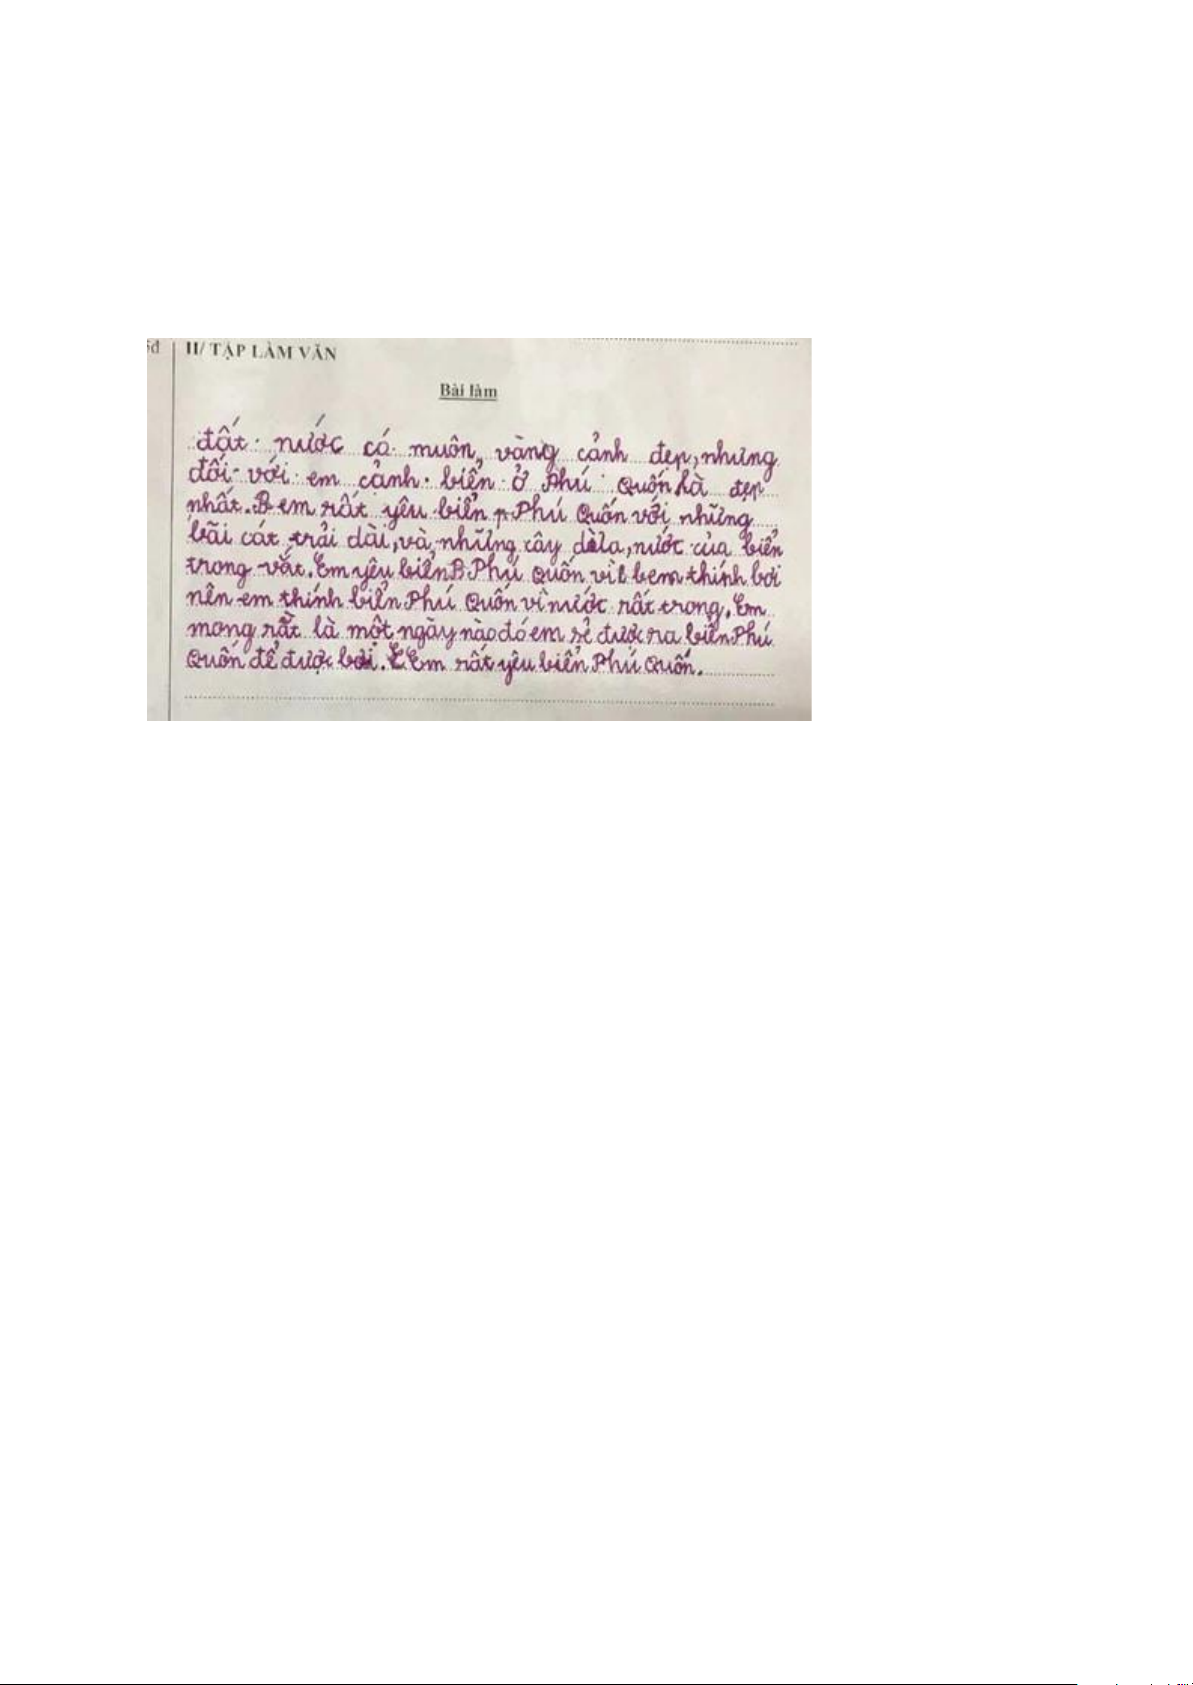 5đ
II/ TẬP LÀM VĂN
Bài làm
đất nước có muôn vàng cảnh đẹp, nhưng
đối với em cảnh biển ở Phú Quốn là đẹp
nhất. B em rất yêu biển p Phú Quốn với những
bãi cát trải dài, và, những cây dòla, nước của biển
trong vắt. Em yêu biển B Phú Quốn vì b em thính bơi
nên em thính biển Phú Quốn vì nước rất trong. Em
mong rằt là một ngày nào đó em sẻ được ra biển Phú
Quốn để được bơi. E Em rất yêu biển Phú Quốn.